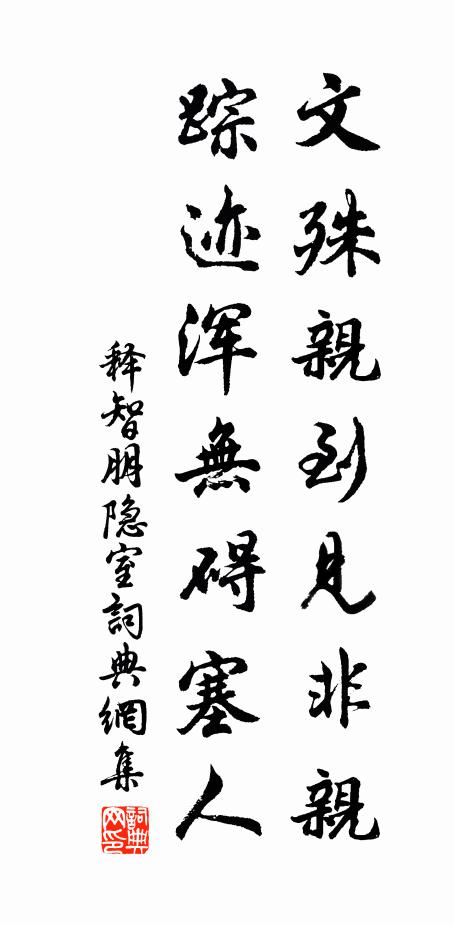 文殊親到見非親
踪迹浑無碍塞人
释智朋隐室詞典網集
詞典网印